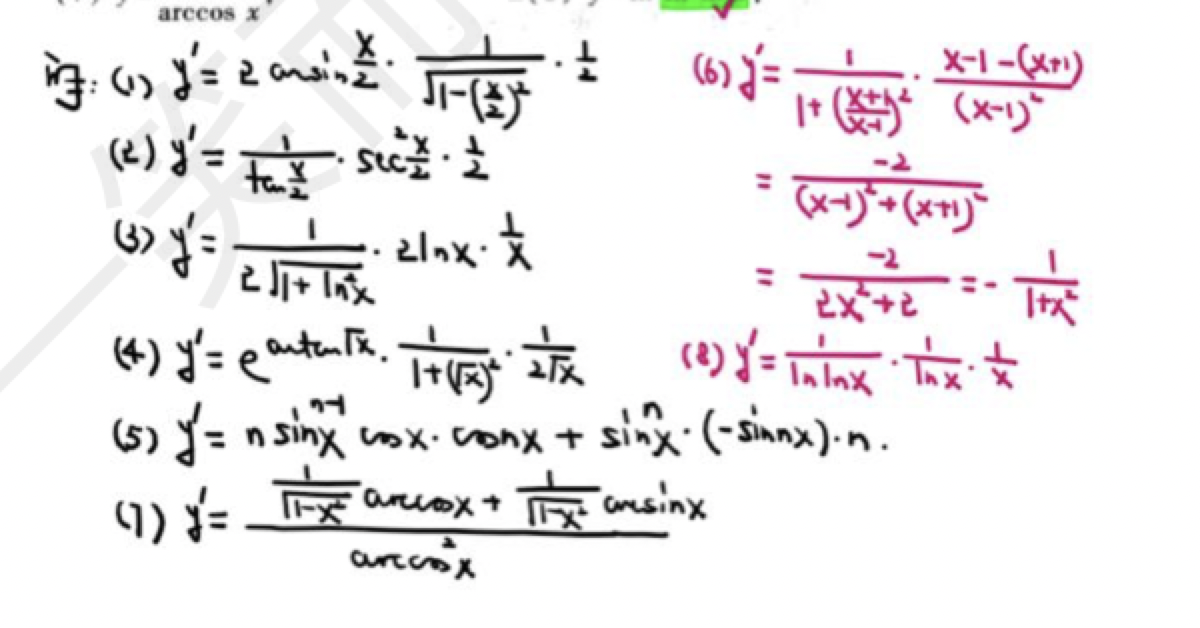 arccos x
解: (1) y' = 2 arcsin x/2 · 1/√(1-(x/2)²) · 1/2
(2) y' = 1/(tan x/2) · sec² x/2 · 1/2
(3) y' = 1/(2√(1+ln²x)) · 2lnx · 1/x
(4) y' = e^(arctan√x) · 1/(1+(√x)²) · 1/(2√x)
(5) y' = n sin^(n-1)x cosx · cosnx + sin^n x · (-sinnx) · n.
(7) y' = (1/√(1-x²) arccosx + 1/√(1-x²) arcsinx)/(arccos²x)
(6) y' = 1/(1+((x+1)/(x-1))²) · (x-1-(x+1))/(x-1)²
= -2/((x-1)²+(x+1)²)
= -2/(2x²+2) = - 1/(1+x²)
(8) y' = 1/(lnlnx) · 1/(lnx) · 1/x